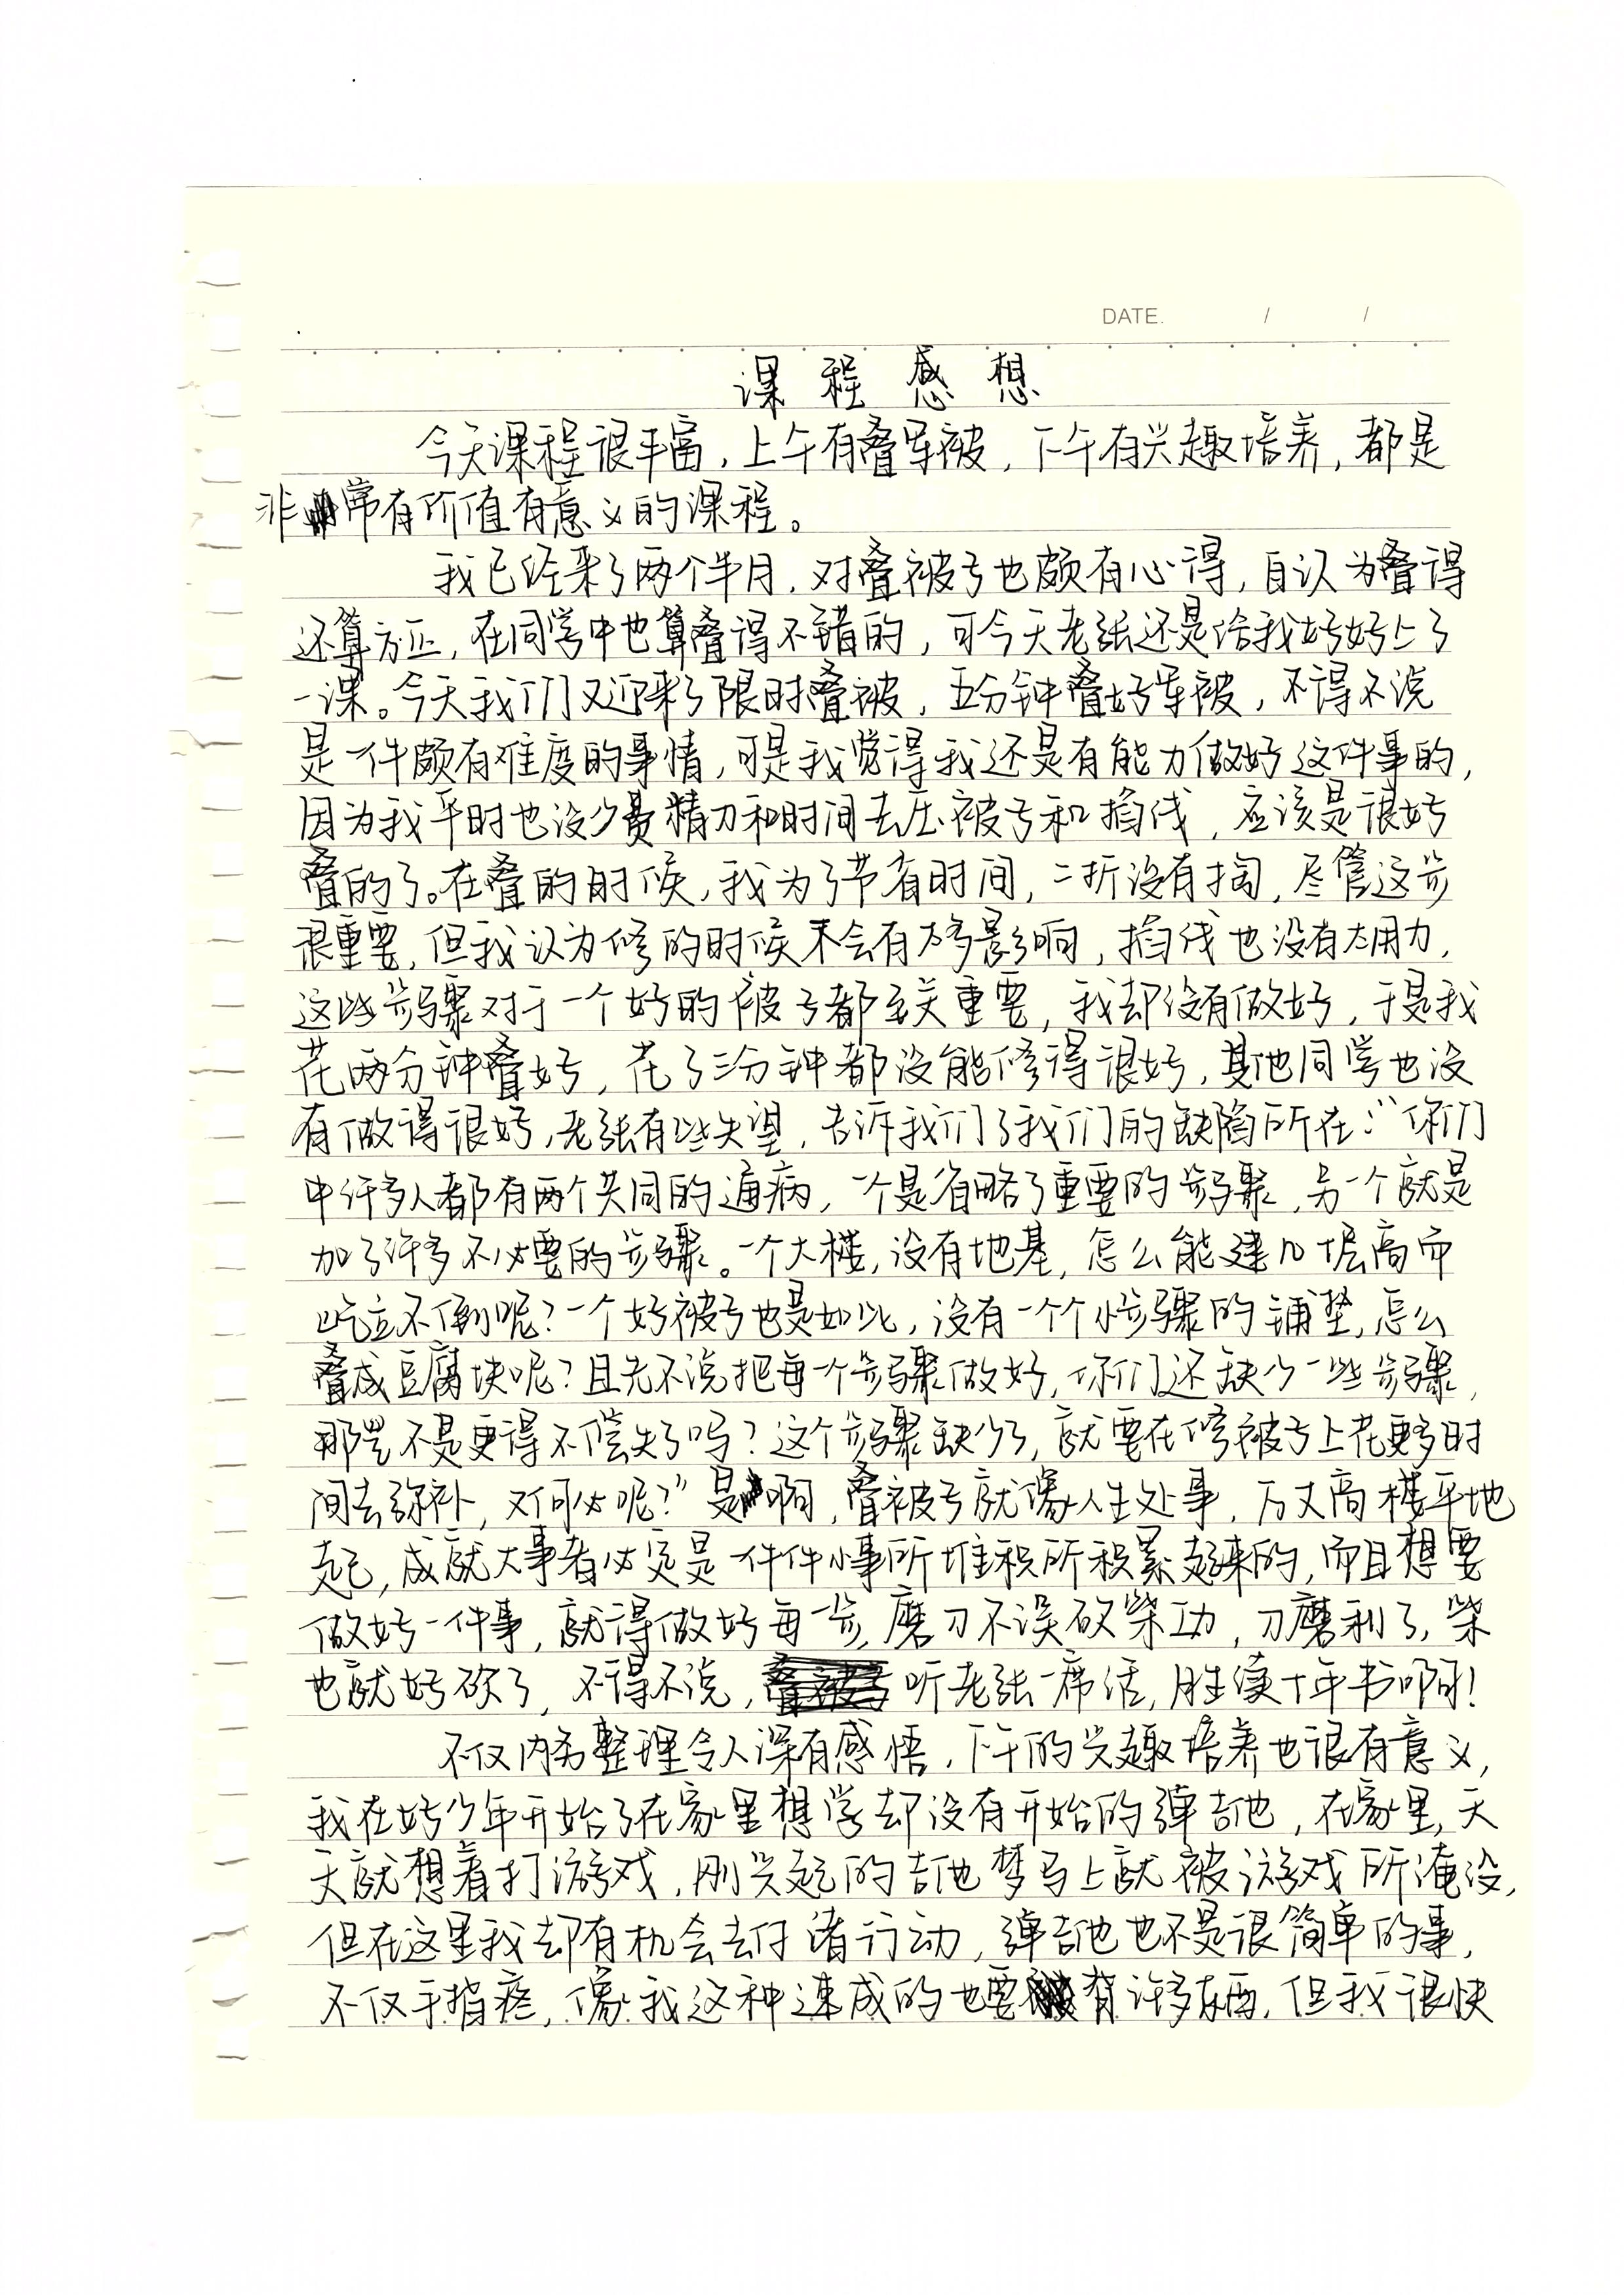 DATE. / /
课程感想
今天课程很丰富，上午有叠军被，下午有兴趣培养，都是
非常有价值有意义的课程。
我已经来了两个半月，对叠被子也颇有心得，自认为叠得
还算方正，在同学中也算叠得不错的，可今天老张还是给我好好上了
一课。今天我们又迎来了限时叠被，五分钟叠好军被，不得不说
是一件颇有难度的事情，可是我觉得我还是有能力做好这件事的，
因为我平时也没少费精力和时间去压被子和掐线，应该是很好
叠的了。在叠的时候，我为了节省时间，二折没有掏，尽管这步
很重要，但我认为修的时候不会有太多影响，掐线也没有太用力，
这些步骤对于一个好的被子都至关重要，我却没有做好，于是我
花两分钟叠好，花了三分钟都没能修得很好，其他同学也没
有做得很好，老张有些失望，告诉我们了我们的缺陷所在：“你们
中许多人都有两个共同的通病，一个是省略了重要的步骤，另一个就是
加了许多不必要的步骤。一个大楼，没有地基，怎么能建几层高而
屹立不倒呢？一个好被子也是如此，没有一个个小步骤的铺垫，怎么
叠成豆腐块呢？且先不说把每一个步骤做好，你们还缺少一些步骤，
那岂不是更得不偿失了吗？这个步骤缺少了，就要在修被子上花更多时
间去弥补，又何必呢？”是啊，叠被子就像人生处事，万丈高楼平地
起，成就大事者必定是一件件小事所堆积所积累起来的，而且想要
做好一件事，就得做好每一步，磨刀不误砍柴工，刀磨利了，柴
也就好砍了，不得不说，听老张一席话，胜读十年书啊！
不仅内务整理令人深有感悟，下午的兴趣培养也很有意义，
我在好少年开始了在家里想学却没有开始的弹吉他，在家里，天
天就想着打游戏，刚兴起的吉他梦马上就被游戏所淹没，
但在这里我却有机会去付诸行动，弹吉他也不是很简单的事，
不仅手指疼，像我这种速成的也要背许多东西，但我很快